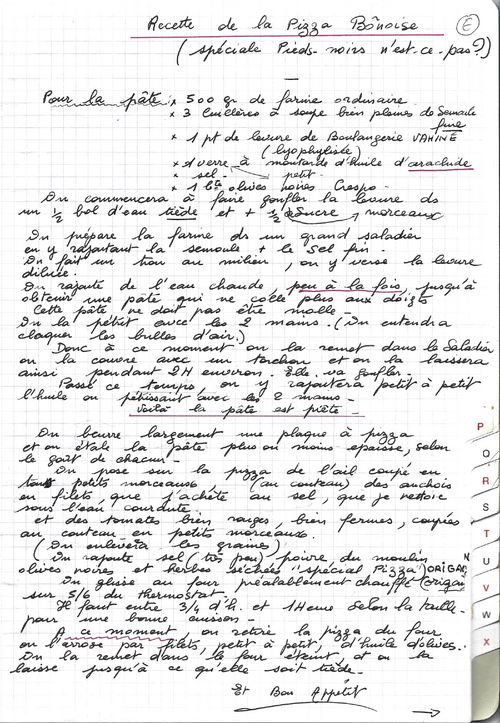 Recette de la Pizza Bônoise
E
(spéciale Pieds-noirs n'est-ce-pas?)
Pour la pâte: x 500 gr de farine ordinaire
x 3 Cuillères à soupe bien pleines de Semoule
fine
x 1 pt de levure de Boulangerie VAHINÉ
(lyophylisée)
x 1 verre à moutarde d'huile d'arachide
x sel - petit -
x 1 bte olives noires Crespo -
On commencera à faire gonfler la levure ds
un 1/2 bol d'eau tiède et + 1/2 Sucre morceaux
On prépare la farine ds un grand saladier
en y rajoutant la semoule + le Sel fin.
On fait un trou au milieu, on y verse la levure
diluée.
On rajoute de l'eau chaude, peu à la fois, jusqu'à
obtenir une pâte qui ne colle plus aux doigts
Cette pâte ne doit pas être molle -
On la pétrit avec les 2 mains. (On entendra
claquer les bulles d'air.)
Donc à ce moment on la remet dans le Saladier
on la couvre avec un torchon et on la laissera
ainsi pendant 2H environ. Elle va gonfler -
Passé ce temps, on y rajoutera petit à petit
l'huile en pétrissant avec les 2 mains -
Voilà la pâte est prête -
On beurre largement une plaque à pizza
et on étale la pâte plus ou moins épaisse, selon
le goût de chacun -
On pose sur la pizza de l'ail coupé en
tout petits morceaux (au couteau) des anchois
en filets, que j'achète au sel, que je nettoie
sous l'eau courante
et des tomates bien rouges, bien fermes, coupées
au couteau en petits morceaux.
(On enlèvera les graines)
On rajoute sel (très peu) poivre du moulin
olives noires et herbes séchées "spécial Pizza" ORIGAN
(origan
On glisse au four préalablement chauffé
sur 5/6 du thermostat.
Il faut entre 3/4 d'h. et 1 Heure selon la taille -
pour une bonne cuisson -
A ce moment on retire la pizza du four
on l'arrose par filets, petit à petit, d'huile d'olives.
On la remet dans le four éteint et on la
laisse jusqu'à ce qu'elle soit tiède.
Et Bon Appétit
P
Q
R
S
T
U
V
W
X